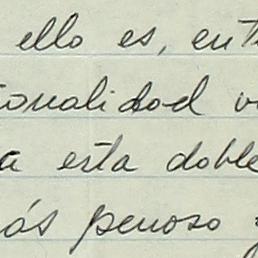 ello es, ent
ionalidad v
a esta doble
ás penoso y